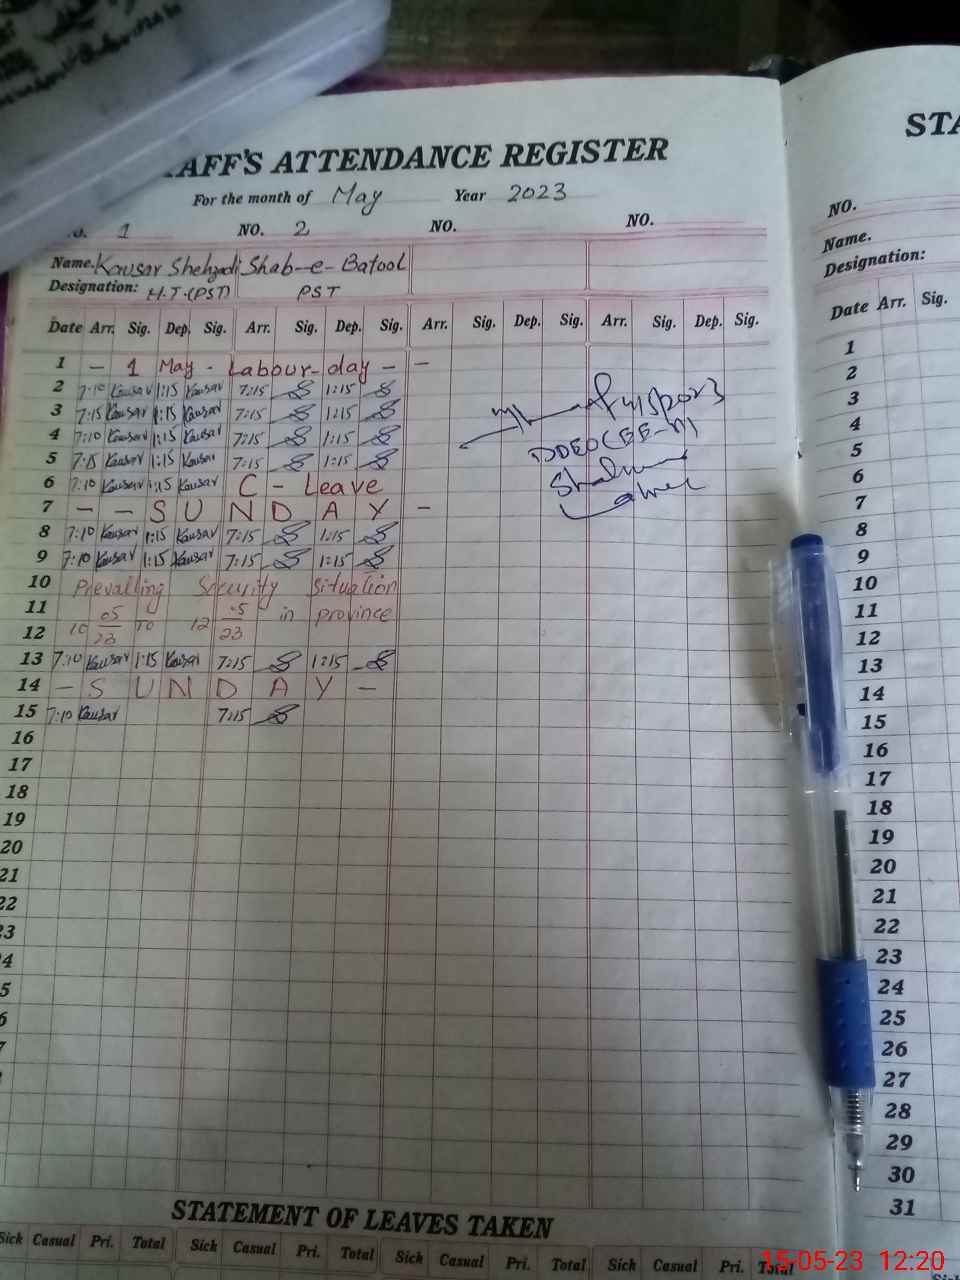 STAFF'S ATTENDANCE REGISTER
For the month of May Year 2023
NO. 1 NO. 2 NO. NO.
Name. Kousar Shehzadi Shab-e-Batool
Designation: H.T.(PST) PST
Date Arr. Sig. Dep. Sig. Arr. Sig. Dep. Sig. Arr. Sig. Dep. Sig. Arr. Sig. Dep. Sig.
1 - 1 May - Labour-day - -
2 7:10 Kousar 1:15 Kousar 7:15 1:15
3 7:15 Kousar 1:15 Kousar 7:15 1:15
4 7:10 Kousar 1:15 Kousar 7:15 1:15
5 7:15 Kousar 1:15 Kousar 7:15 1:15
6 7:10 Kousar 1:15 Kousar C - Leave
7 - - S U N D A Y -
8 7:10 Kousar 1:15 Kousar 7:15 1:15
9 7:10 Kousar 1:15 Kousar 7:15 1:15
10 Prevalling Security Situation
11 10 05/23 to 12 05/23 in province
12
13 7:10 Kousar 1:15 Kousar 7:15 1:15
14 - S U N D A Y -
15 7:10 Kousar 7:15
16
17
18
19
20
21
22
23
4
5
6
7
DDEO (EE-M)
STATEMENT OF LEAVES TAKEN
Sick Casual Pri. Total Sick Casual Pri. Total Sick Casual Pri. Total Sick Casual Pri. Total
STA
NO.
Name.
Designation:
Date Arr. Sig.
1
2
3
4
5
6
7
8
9
10
11
12
13
14
15
16
17
18
19
20
21
22
23
24
25
26
27
28
29
30
31
15-05-23 12:20